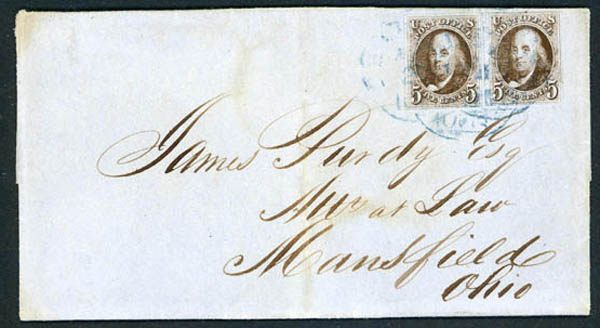 U S U S
POST OFFICE POST OFFICE
5 FIVE CENTS 5 5 FIVE CENTS 5
James Purdy Esq
Atty at Law
Mansfield
Ohio